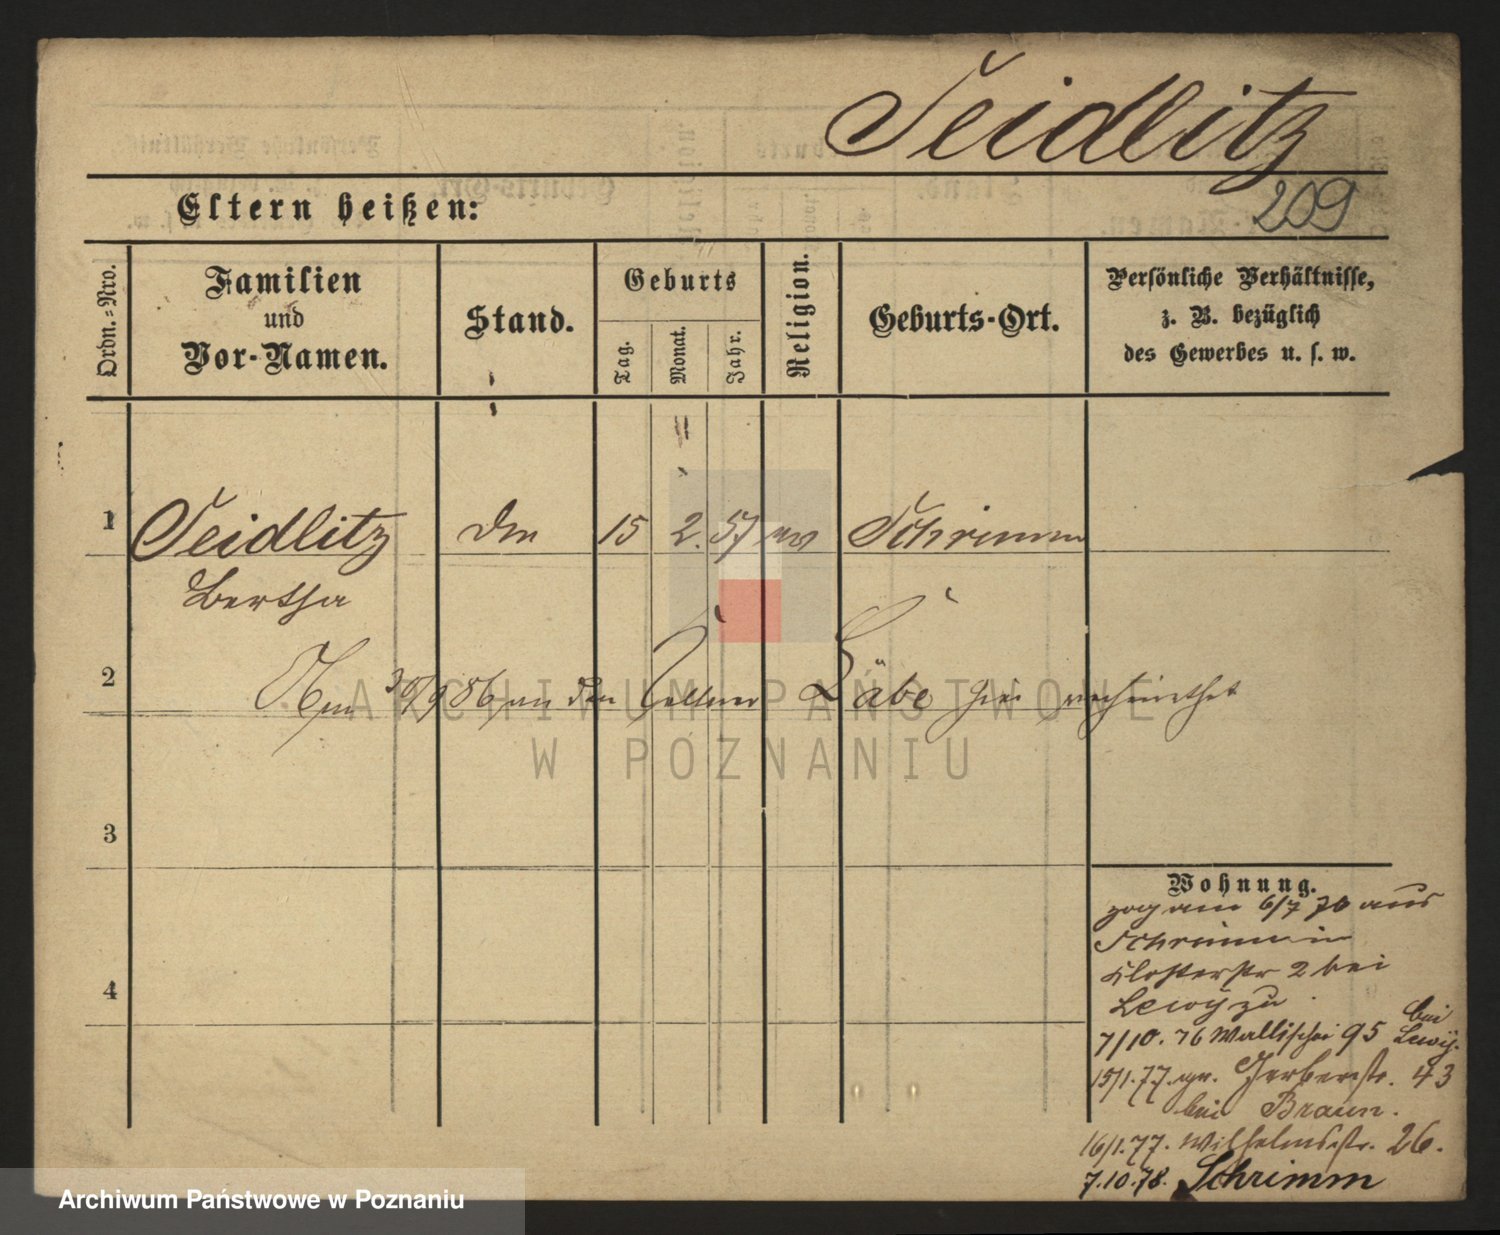 Seidlitz
209
Eltern heißen:
Ordn.-Nro.
Familien
und
Vor-Namen.
Stand.
Geburts
Tag.
Monat.
Jahr.
Religion.
Geburts-Ort.
Persönliche Verhältnisse,
z. B. bezüglich
des Gewerbes u. s. w.
1
Seidlitz
15
2.
57
Schrimm
Bertha
2
Am 30/9 86 an den Läbe hier verheirathet
ARCHIWUM PAŃSTWOWE
W POZNANIU
3
4
Wohnung.
zog am 6/7 76 aus
Schrimm in
Klosterstr 2 bei
Lewÿ zu
7/10. 76 Wallischei 95 bei Lewÿ.
15/1.77. gr. Gerberstr. 43
bei Braun.
16/1.77. Wilhelmsstr. 26.
7.10.78. Schrimm
Archiwum Państwowe w Poznaniu